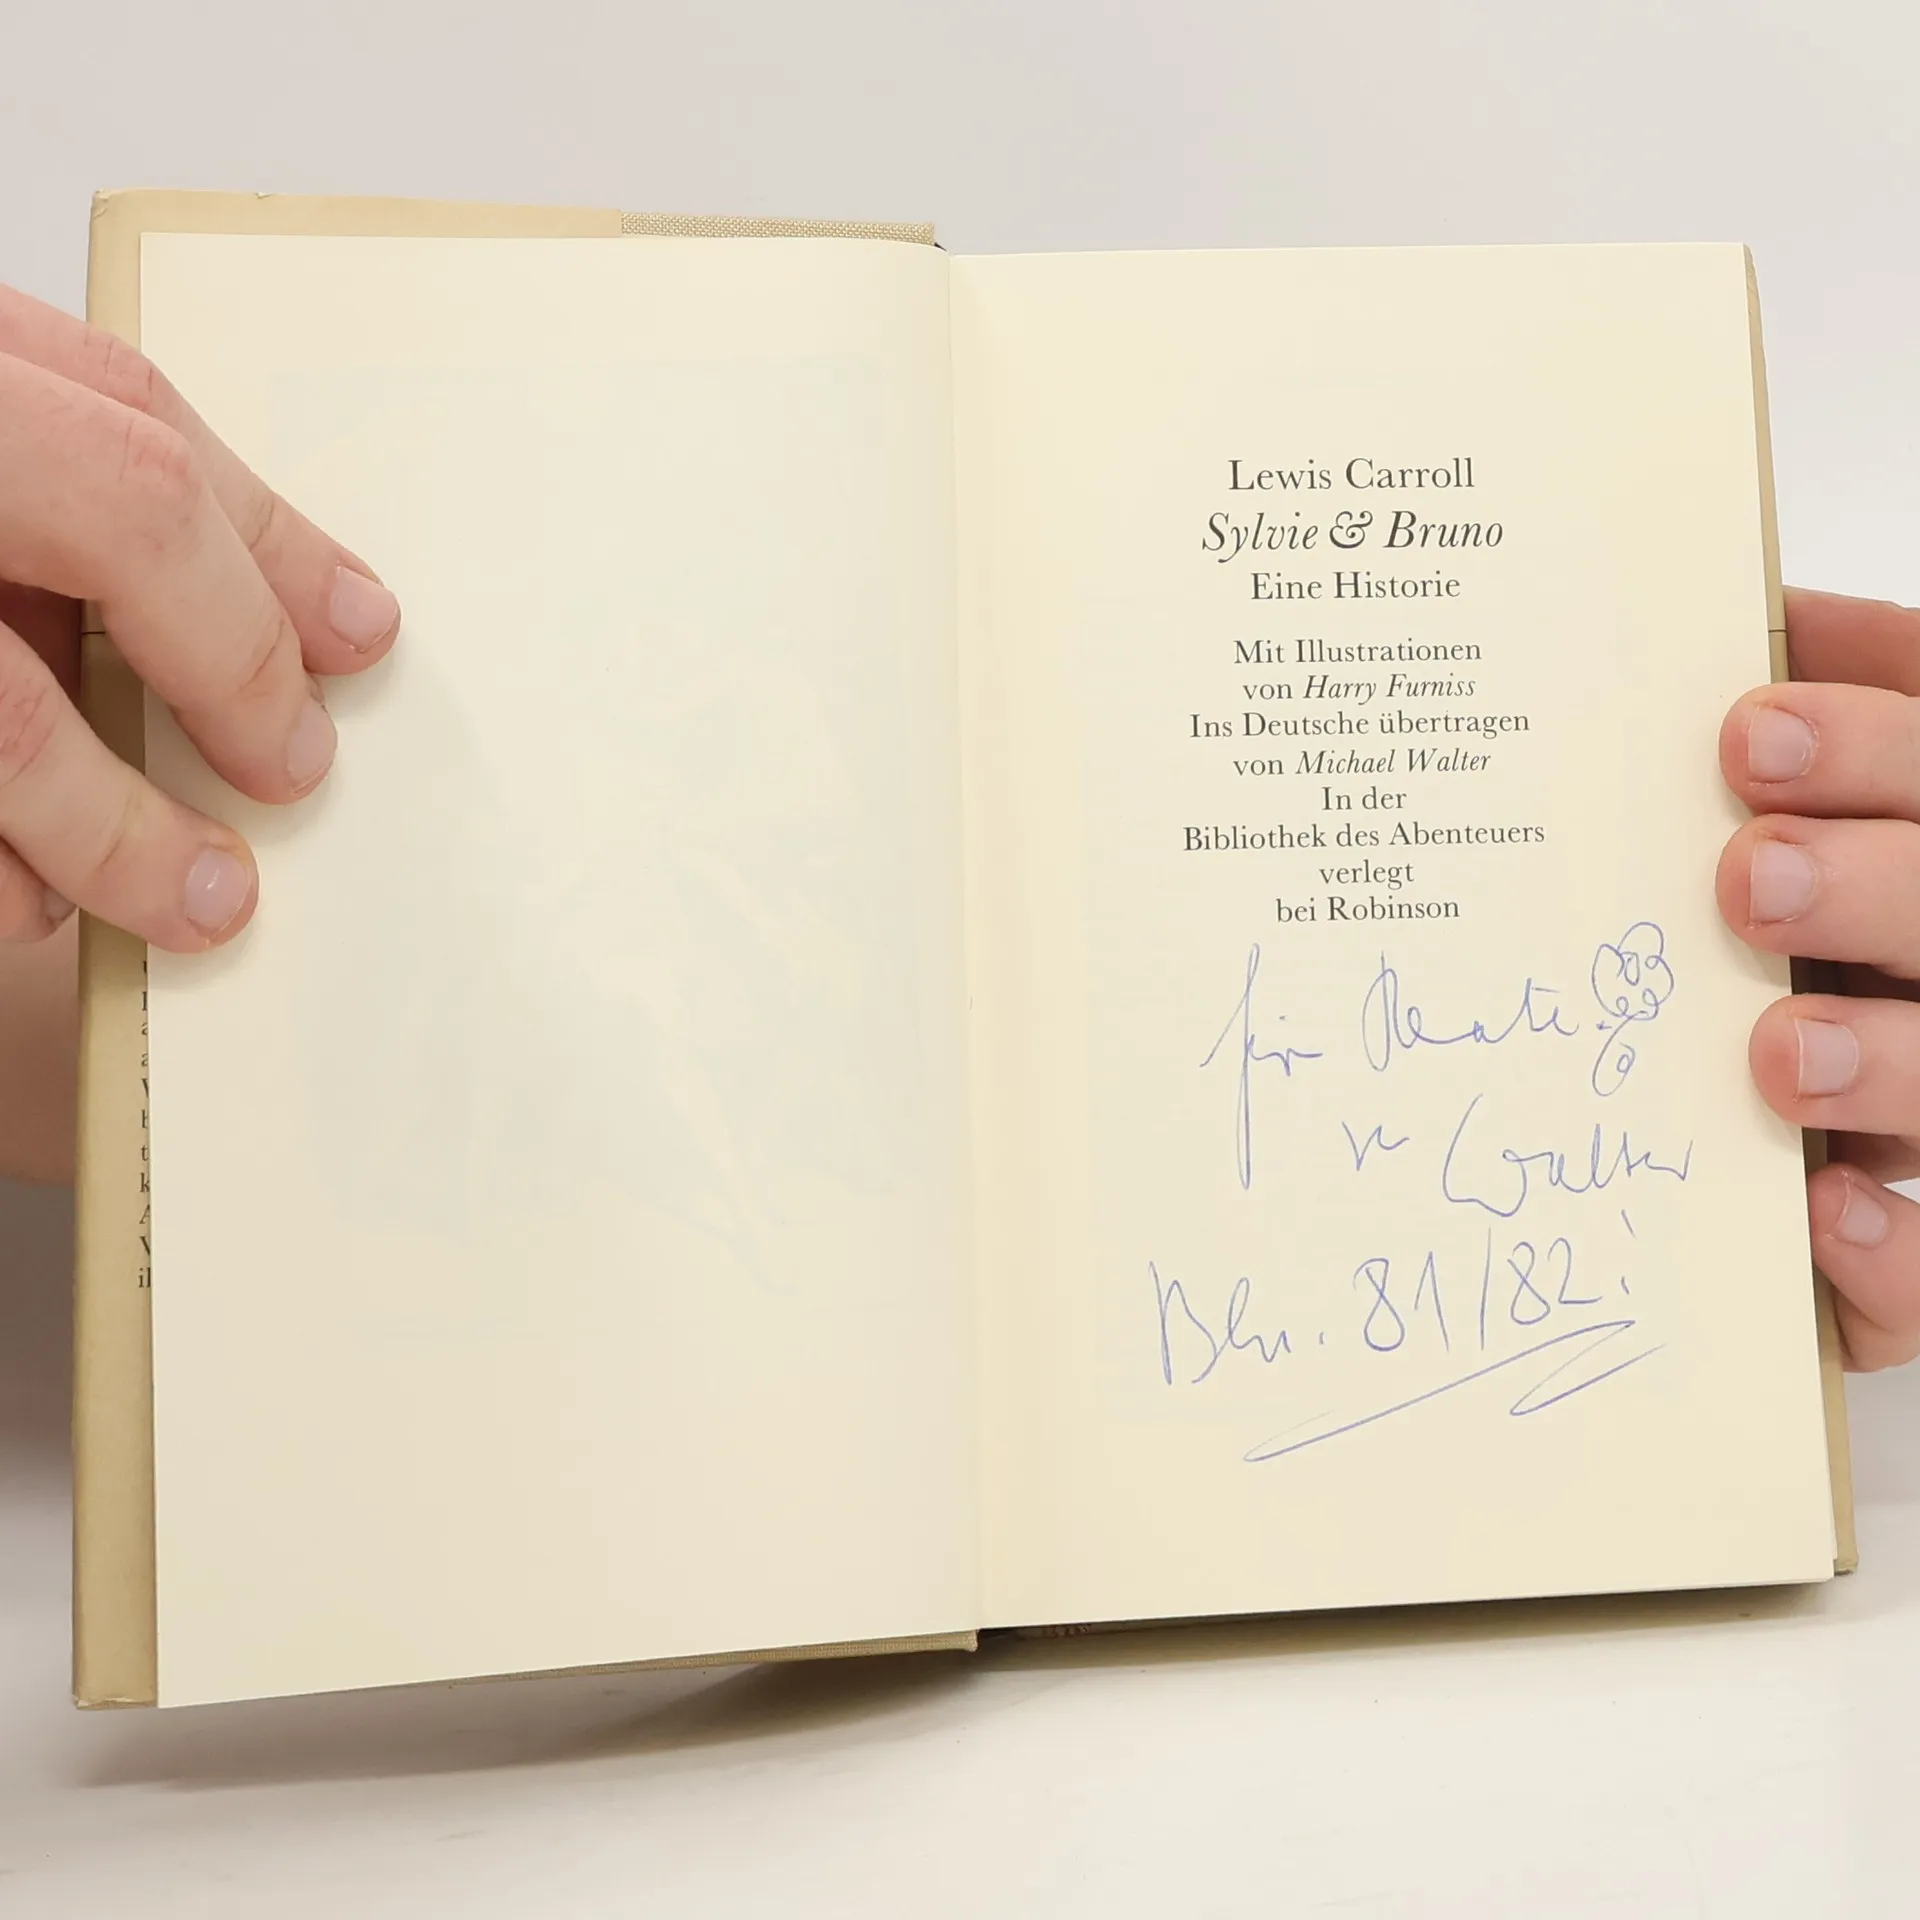 Lewis Carroll
Sylvie & Bruno
Eine Historie
Mit Illustrationen
von Harry Furniss
Ins Deutsche übertragen
von Michael Walter
In der
Bibliothek des Abenteuers
verlegt
bei Robinson
für Renate
v. Walter
Bln. 81/82!